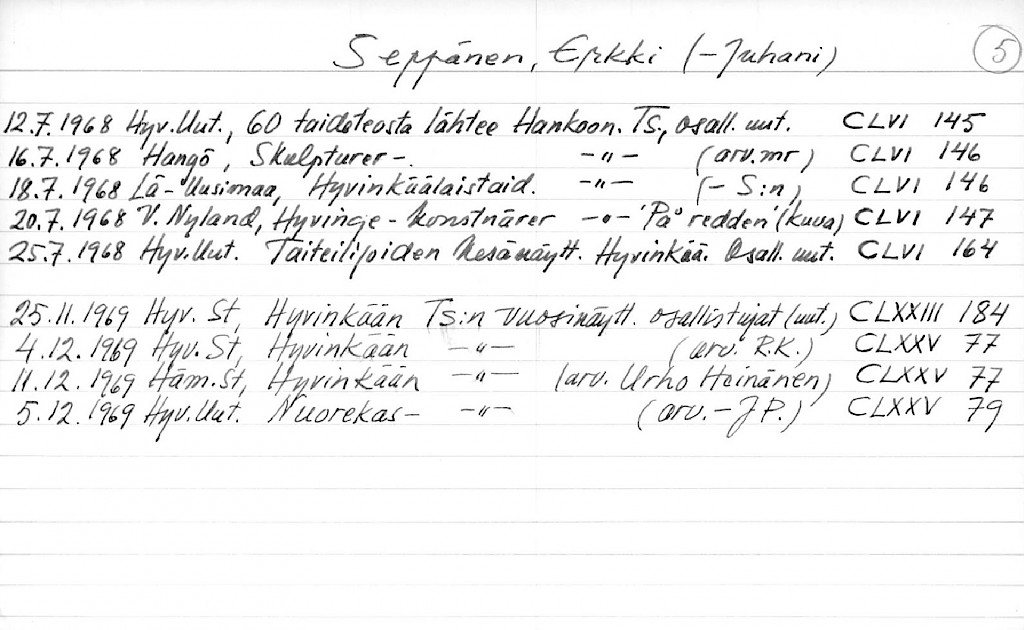 Seppänen, Erkki (-Juhani) 5
12.7.1968 Hyv.Uut., 60 taideteosta lähtee Hankoon. Ts., osall. uut. CLVI 145
16.7.1968 Hangö, Skulpturer-. -"- (arv.mr) CLVI 146
18.7.1968 Lä-Uusimaa, Hyvinkääläistaid. -"- (-S:n) CLVI 146
20.7.1968 V. Nyland, Hyvinge-konstnärer -"- 'På redden' (kuva) CLVI 147
25.7.1968 Hyv.Uut. Taiteilijoiden Kesänäytt. Hyvinkää. Osall. uut. CLVI 164
25.11.1969 Hyv. St, Hyvinkään Ts:n vuosinäytt. osallistujat (uut.) CLXXIII 184
4.12.1969 Hyv. St, Hyvinkään -"- (arv. R.K.) CLXXV 77
11.12.1969 Häm.St, Hyvinkään -"- (arv. Urho Heinänen) CLXXV 77
5.12.1969 Hyv.Uut. Nuorekas- -"- (arv.-JP.) CLXXV 79